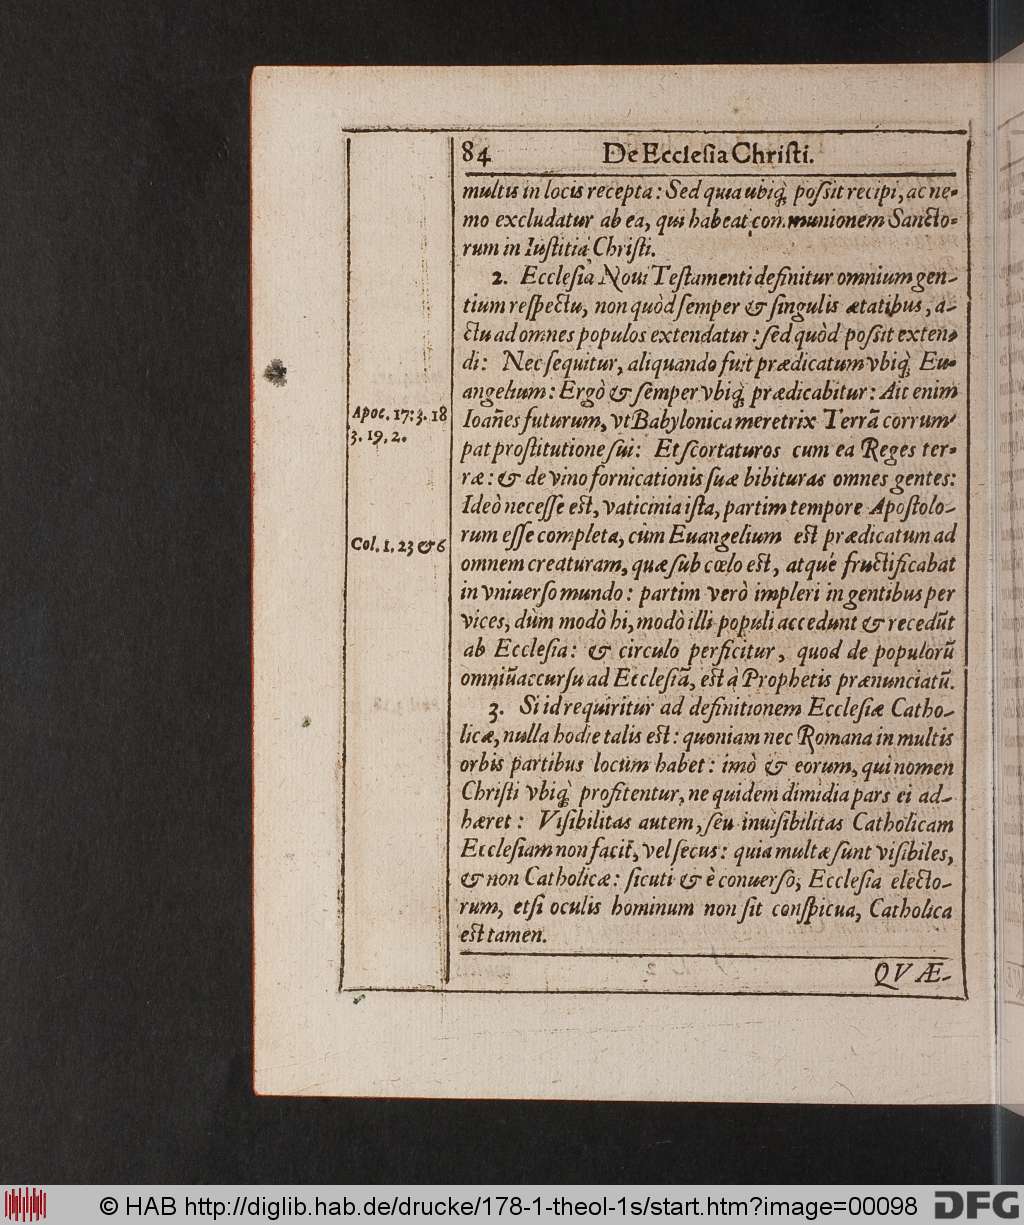 84 De Ecclesia Christi.
multis in locis recepta: Sed quia ubiq; possit recipi, ac ne-
mo excludatur ab ea, qui habeat communionem Sancto-
rum in Iustitia Christi.
2. Ecclesia Noui Testamenti definitur omnium gen-
tium respectu, non quòd semper & singulis ætatibus, a-
ctu ad omnes populos extendatur: sed quòd possit exten-
di: Nec sequitur, aliquando fuit prædicatum vbiq; Eu-
angelium: Ergò & semper vbiq; prædicabitur: Ait enim
Ioañes futurum, vt Babylonica meretrix Terrã corrum-
pat prostitutione sui: Et scortaturos cum ea Reges ter-
ræ: & de vino fornicationis suæ bibituras omnes gentes:
Ideò necesse est, vaticinia ista, partim tempore Apostolo-
rum esse completa, cùm Euangelium est prædicatum ad
omnem creaturam, quæ sub cœlo est, atqué fructificabat
in vniuerso mundo: partim verò impleri in gentibus per
vices, dùm modò hi, modò illi populi accedunt & recedũt
ab Ecclesia: & circulo perficitur, quod de populorũ
omniũ accursu ad Ecclesiã, est à Prophetis prænunciatũ.
3. Si id requiritur ad definitionem Ecclesiæ Catho-
licæ, nulla hodie talis est: quoniam nec Romana in multis
orbis partibus locum habet: imò & eorum, qui nomen
Christi vbiq; profitentur, ne quidem dimidia pars ei ad-
hæret: Visibilitas autem, seu inuisibilitas Catholicam
Ecclesiam non facit, vel secus: quia multæ sunt visibiles,
& non Catholicæ: sicuti & è conuerso, Ecclesia electo-
rum, etsi oculis hominum non sit conspicua, Catholica
est tamen.
QVÆ-
Apoc. 17: 3. 18
3. 19, 2.
Col. 1. 23 & 6
© HAB http://diglib.hab.de/drucke/178-1-theol-1s/start.htm?image=00098
DFG